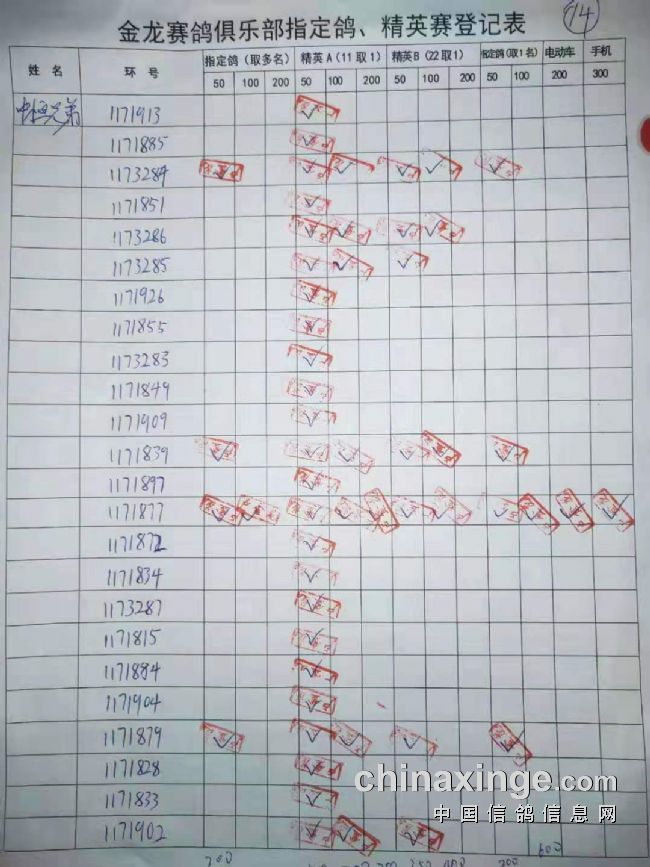 14
金龙赛鸽俱乐部指定鸽、精英赛登记表
姓 名 环 号 指定鸽（取多名） 精英A（11取1） 精英B（22取1） 指定鸽（取1名） 电动车 手机
50 100 200 50 100 200 50 100 200 50 100 200 300
兄弟 1171913
1171885
1173284
1171851
1173286
1173285
1171926
1171855
1173283
1171849
1171909
1171839
1171897
1171877
1171872
1171834
1173287
1171815
1171884
1171904
1171879
1171828
1171833
1171902
200 600
chinaxinge.com
中国信鸽信息网